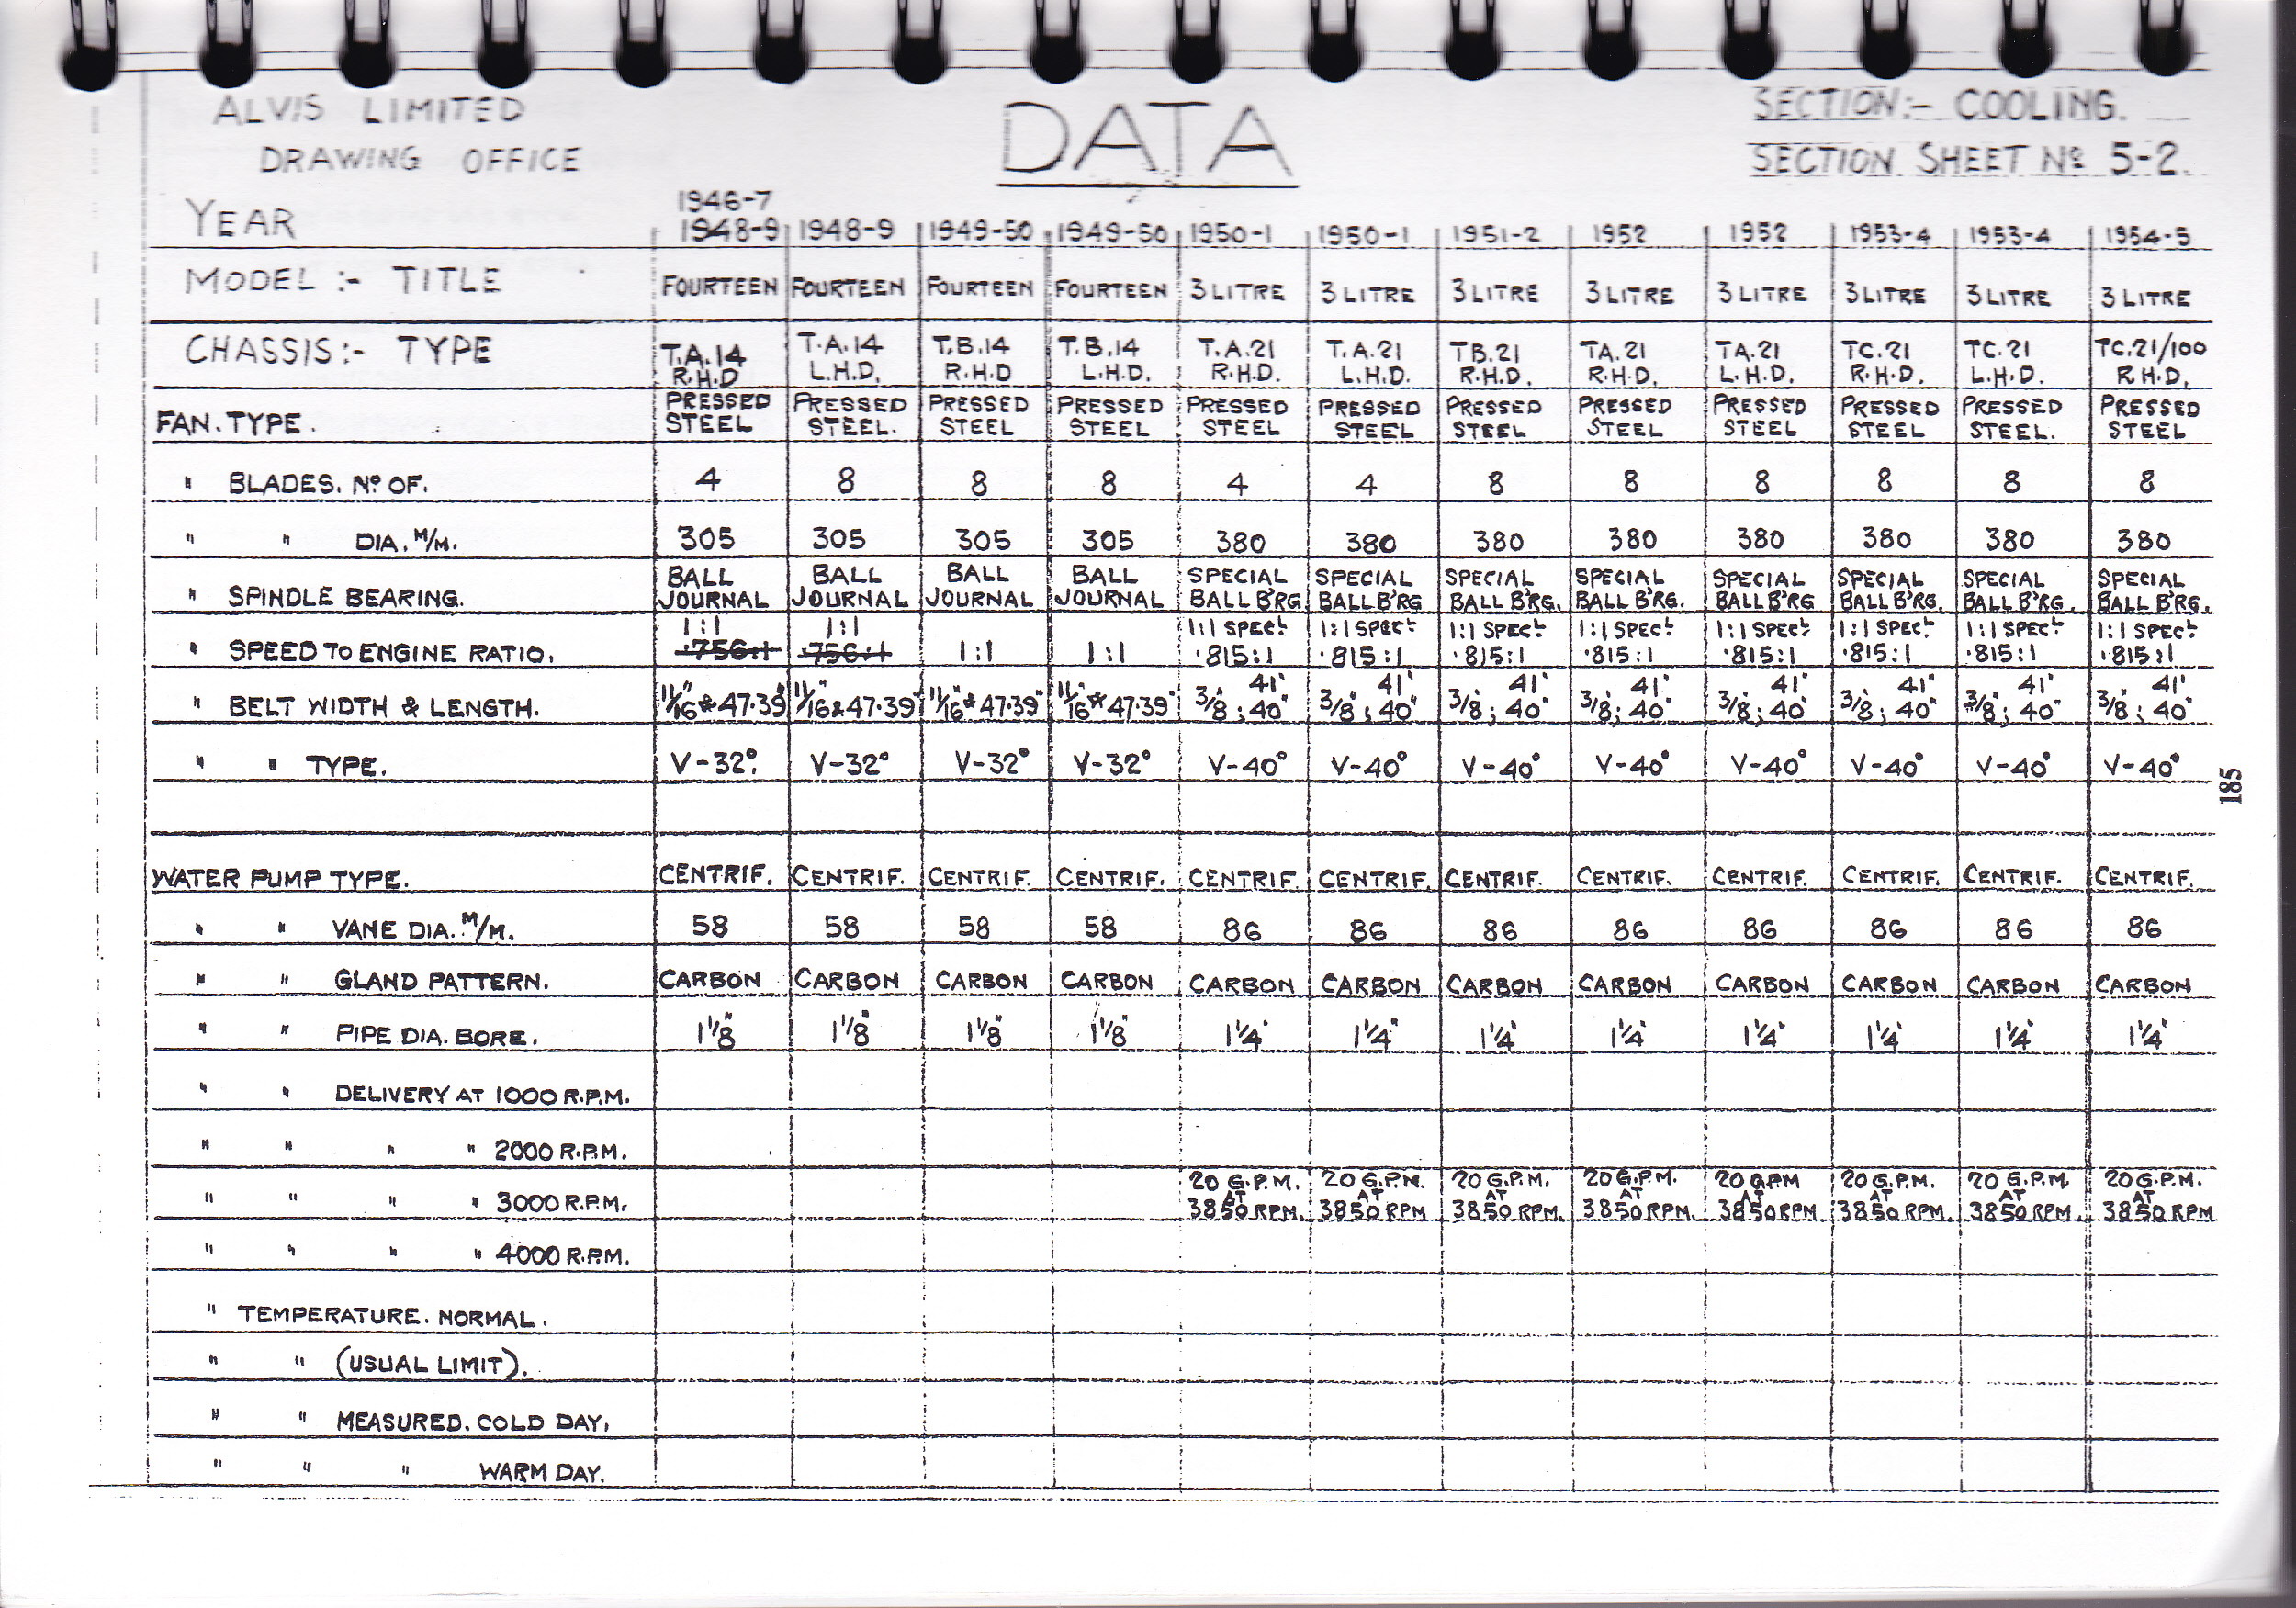 ALVIS LIMITED
DRAWING OFFICE
DATA
SECTION:- COOLING.
SECTION SHEET Nº 5-2.
1946-7
YEAR 1948-9 1948-9 1949-50 1949-50 1950-1 1950-1 1951-2 1952 1952 1953-4 1953-4 1954-5
MODEL :- TITLE FOURTEEN FOURTEEN FOURTEEN FOURTEEN 3 LITRE 3 LITRE 3 LITRE 3 LITRE 3 LITRE 3 LITRE 3 LITRE 3 LITRE
CHASSIS:- TYPE T.A.14 T.A.14 T.B.14 T.B.14 T.A.21 T.A.21 TB.21 TA.21 TA.21 TC.21 TC.21 TC.21/100
R.H.D L.H.D. R.H.D L.H.D. R.H.D. L.H.D. R.H.D. R.H.D. L.H.D. R.H.D. L.H.D. R.H.D.
PRESSED PRESSED PRESSED PRESSED PRESSED PRESSED PRESSED PRESSED PRESSED PRESSED PRESSED PRESSED
FAN. TYPE. STEEL STEEL. STEEL STEEL STEEL STEEL STEEL STEEL STEEL STEEL STEEL. STEEL
" BLADES. Nº OF. 4 8 8 8 4 4 8 8 8 8 8 8
" " DIA. M/M. 305 305 305 305 380 380 380 380 380 380 380 380
BALL BALL BALL BALL SPECIAL SPECIAL SPECIAL SPECIAL SPECIAL SPECIAL SPECIAL SPECIAL
" SPINDLE BEARING. JOURNAL JOURNAL JOURNAL JOURNAL BALL B'RG. BALL B'RG BALL B'RG. BALL B'RG. BALL B'RG BALL B'RG. BALL B'RG. BALL B'RG.
1:1 1:1 1:1 SPECL 1:1 SPECL 1:1 SPECL 1:1 SPECL 1:1 SPECL 1:1 SPECL 1:1 SPECL 1:1 SPECL
" SPEED TO ENGINE RATIO. ·756:1 ·756:1 1:1 1:1 ·815:1 ·815:1 ·815:1 ·815:1 ·815:1 ·815:1 ·815:1 ·815:1
41" 41" 41" 41" 41" 41" 41" 41"
" BELT WIDTH & LENGTH. 11/16" & 47·39" 11/16" & 47·39" 11/16" & 47·39" 11/16" & 47·39" 3/8"; 40" 3/8"; 40" 3/8"; 40" 3/8"; 40" 3/8"; 40" 3/8"; 40" 3/8"; 40" 3/8"; 40"
" " TYPE. V-32°. V-32° V-32° V-32° V-40° V-40° V-40° V-40° V-40° V-40° V-40° V-40°
185
WATER PUMP TYPE. CENTRIF. CENTRIF. CENTRIF. CENTRIF. CENTRIF. CENTRIF. CENTRIF. CENTRIF. CENTRIF. CENTRIF. CENTRIF. CENTRIF.
" " VANE DIA. M/M. 58 58 58 58 86 86 86 86 86 86 86 86
" " GLAND PATTERN. CARBON CARBON CARBON CARBON CARBON CARBON CARBON CARBON CARBON CARBON CARBON CARBON
" " PIPE DIA. BORE. 1 1/8" 1 1/8" 1 1/8" 1 1/8" 1 1/4" 1 1/4" 1 1/4" 1 1/4" 1 1/4" 1 1/4" 1 1/4" 1 1/4"
" " DELIVERY AT 1000 R.P.M.
" " " " 2000 R.P.M.
20 G.P.M. 20 G.P.M. 20 G.P.M. 20 G.P.M. 20 GPM 20 G.P.M. 20 G.P.M. 20 G.P.M.
AT AT AT AT AT AT AT AT
" " " " 3000 R.P.M. 3850 RPM. 3850 RPM 3850 RPM. 3850 RPM. 3850 RPM 3850 RPM. 3850 RPM. 3850 RPM
" " " " 4000 R.P.M.
" TEMPERATURE. NORMAL.
" " (USUAL LIMIT).
" " MEASURED. COLD DAY.
" " " WARM DAY.